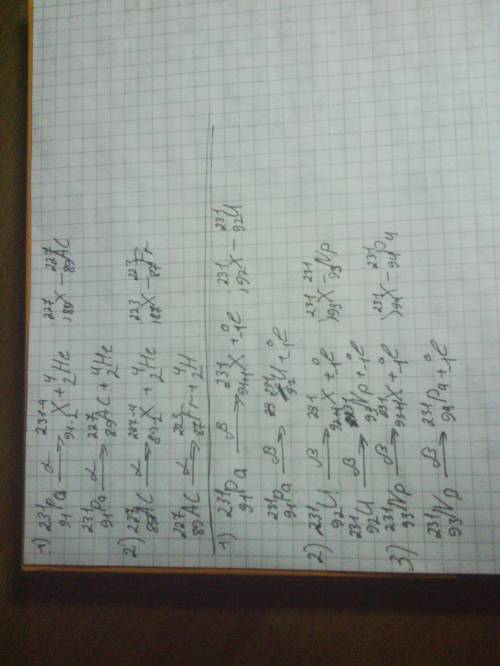 1) ²³¹₉₁Pa →α ²³¹⁻⁴₉₁₋₂X + ⁴₂He ²²⁷₈₉X – ²²⁷₈₉AC
²³¹₉₁Pa →α ²²⁷₈₉AC + ⁴₂He
2) ²²⁷₈₉AC →α ²²⁷⁻⁴₈₉₋₂X + ⁴₂He ²²³₈₇X – ²²³₈₇Fr
²²⁷₈₉AC →α ²²³₈₇Fr + ⁴₂H
1) ²³¹₉₁Pa →β ²³¹₉₁₊₁X + ⁰₋₁e ; ²³¹₉₂X – ²³¹₉₂U
²³¹₉₁Pa →β ²³¹₉₂U + ⁰₋₁e
2) ²³¹₉₂U →β ²³¹₉₂₊₁X + ⁰₋₁e ; ²³¹₉₃X – ²³¹₉₃Np
²³¹₉₂U →β ²³¹₉₃Np + ⁰₋₁e
3) ²³¹₉₃Np →β ²³¹₉₃₊₁X + ⁰₋₁e ; ²³¹₉₄X – ²³¹₉₄Pu
²³¹₉₃Np →β ²³¹₉₄Pu + ⁰₋₁e